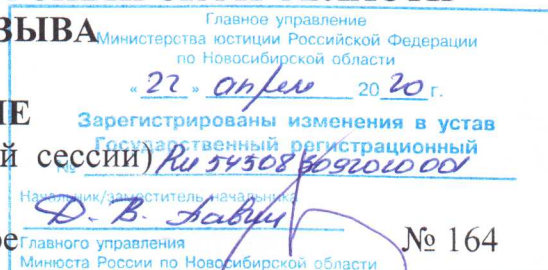 ЗЫВА
Главное управление
Министерства юстиции Российской Федерации
по Новосибирской области
« 22 » апреля 20 20 г.
ИЕ
Зарегистрированы изменения в устав
Государственный регистрационный
й сессии)
№ RU 543083092020001
Начальник/заместитель начальника
Д. В.
ое
Главного управления
Минюста России по Новосибирской области
№ 164